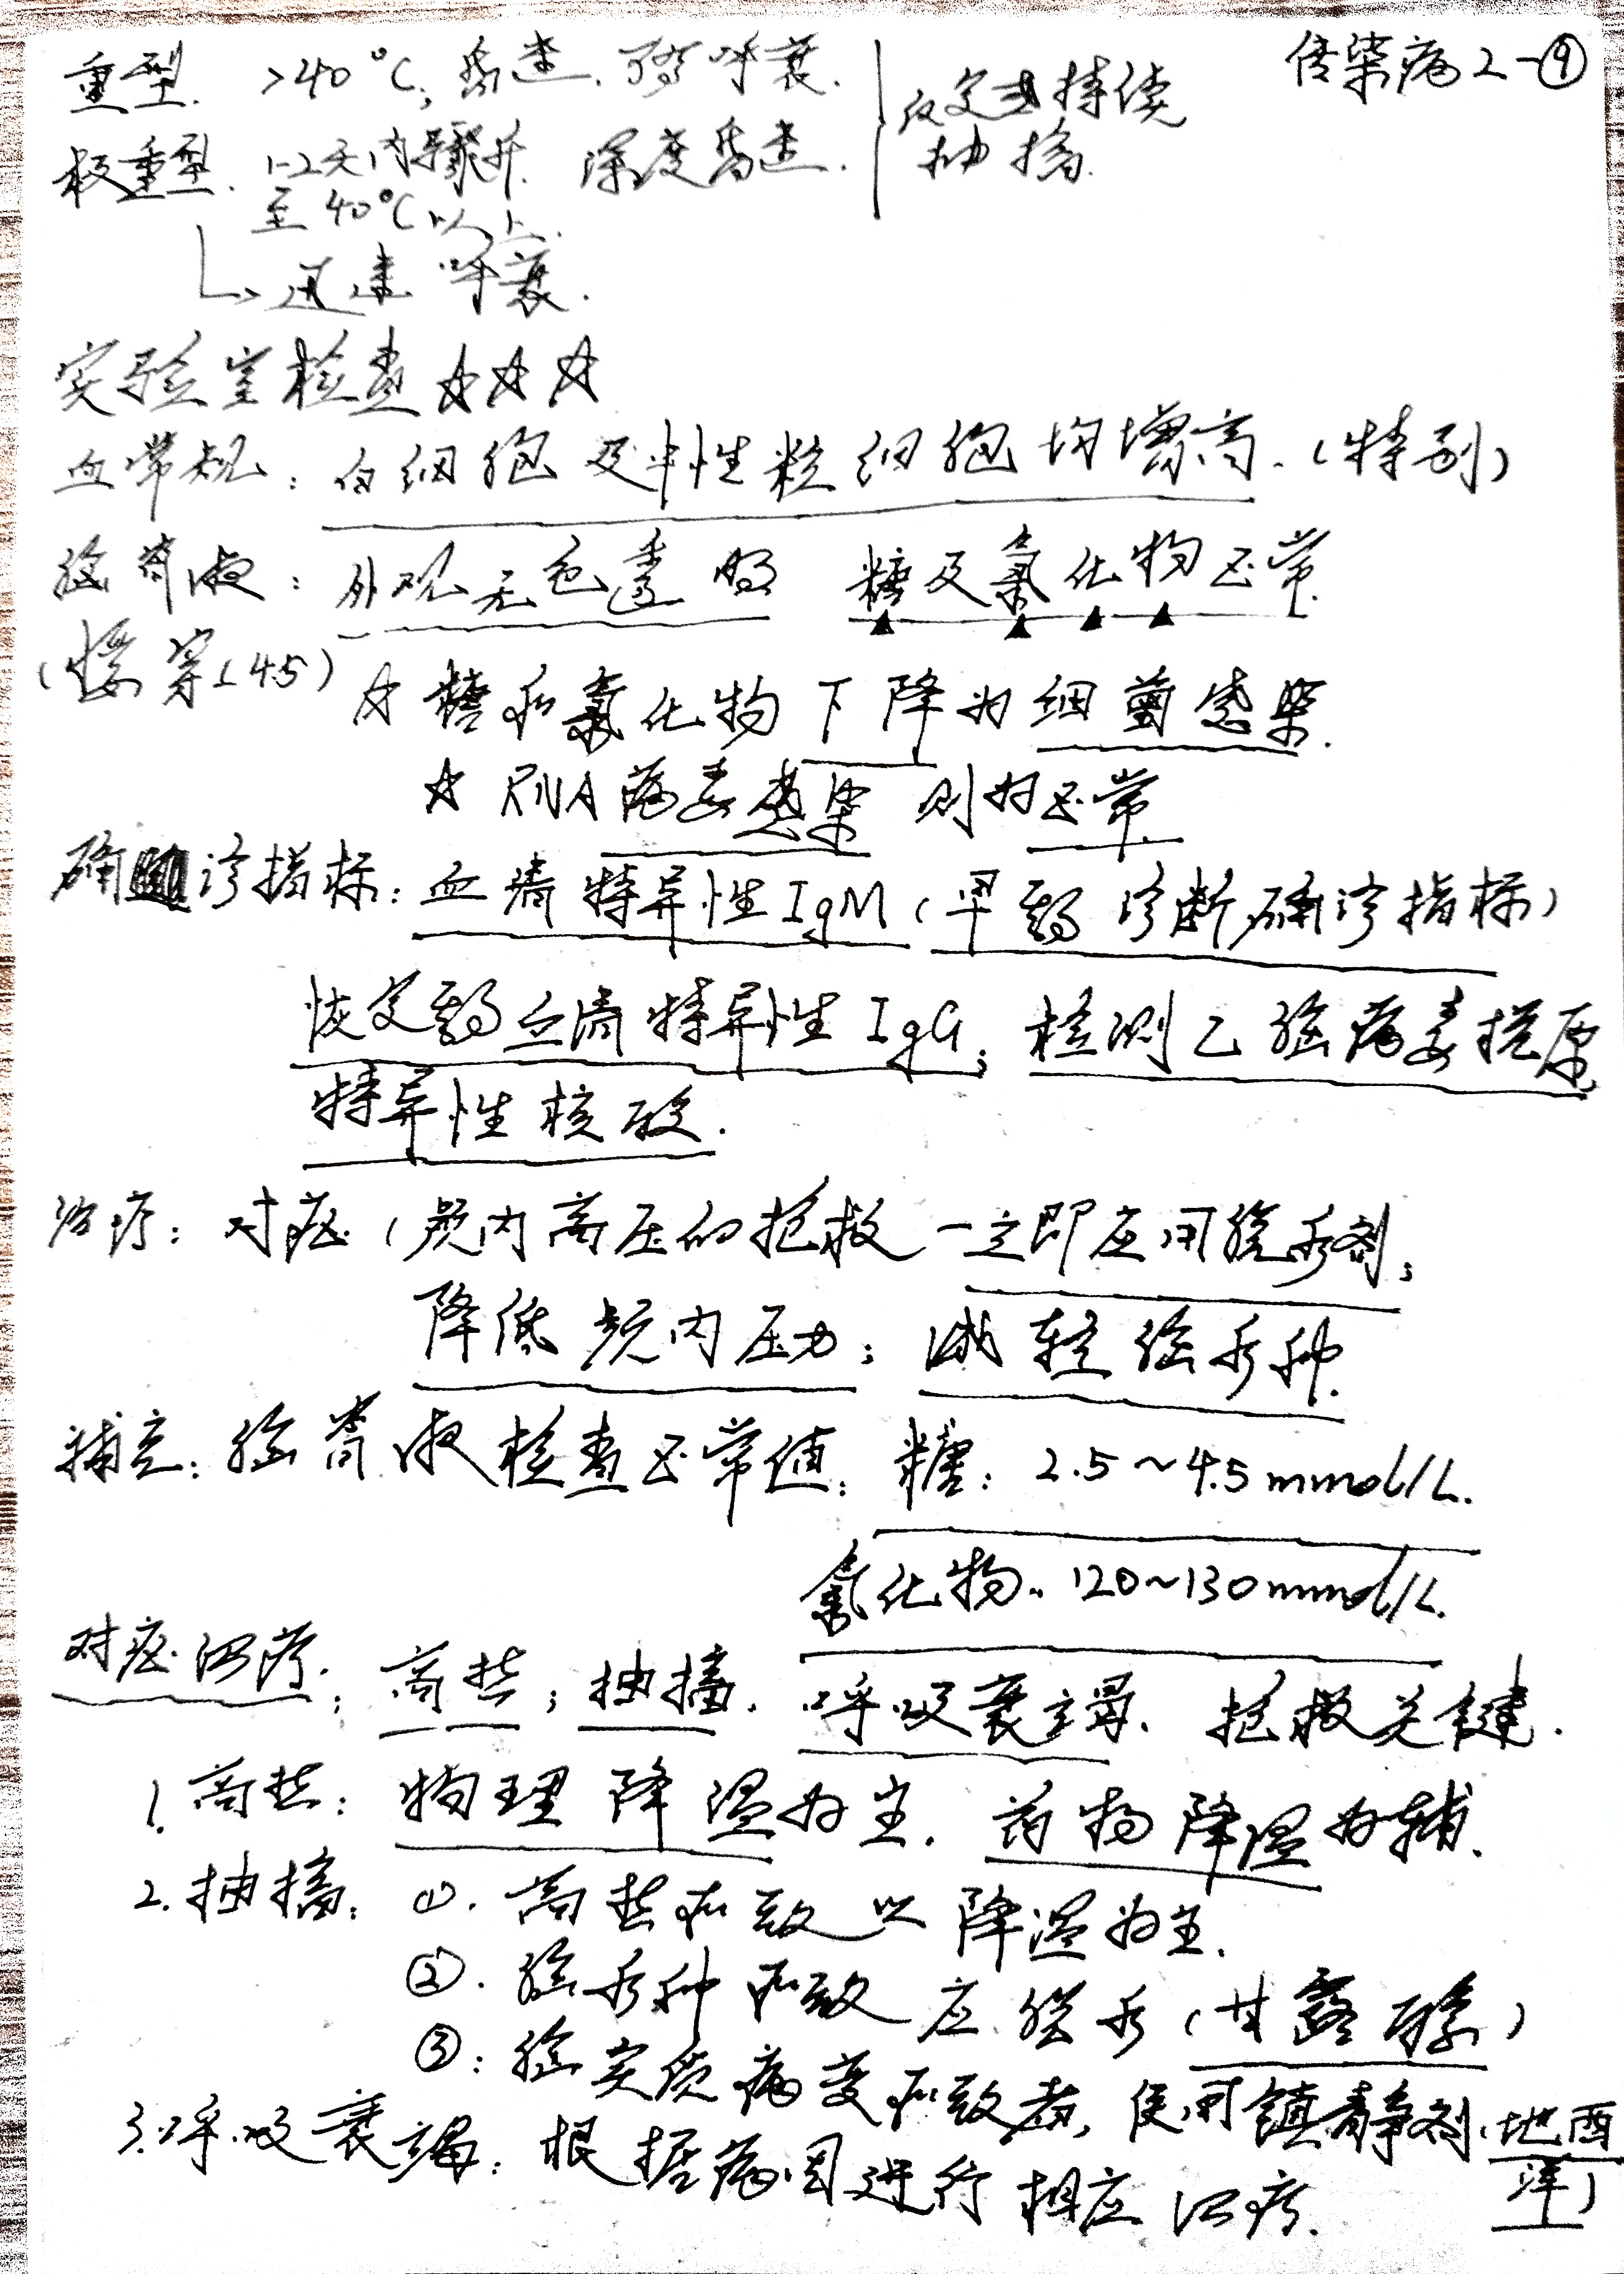 传染病2-⑨
重型. >40℃, 昏迷. 可有呼衰. 反复或持续
抽搐.
极重型. 1-2天内骤升 深度昏迷.
至40℃以上.
↳迅速呼衰.
实验室检查☆☆☆
血常规: 白细胞及中性粒细胞均增高.(特别)
脑脊液: 外观无色透明 糖及氯化物正常.
(腰穿L45)
☆糖和氯化物下降为细菌感染.
☆RNA病毒感染则为正常.
确诊指标: 血清特异性IgM(早期诊断确诊指标)
恢复期血清特异性IgG; 检测乙脑病毒抗原,
特异性核酸.
治疗: 对症(颅内高压的抢救—立即应用脱水剂;
降低颅内压力; 减轻脑水肿.
补充: 脑脊液检查正常值: 糖: 2.5~4.5mmol/L.
氯化物: 120~130mmol/L.
对症治疗: 高热; 抽搐. 呼吸衰竭. 抢救关键.
1. 高热: 物理降温为主. 药物降温为辅.
2. 抽搐: ①. 高热所致以降温为主.
②. 脑水肿所致应脱水(甘露醇)
③: 脑实质病变所致者, 使用镇静剂(地西
泮)
3. 呼吸衰竭: 根据病因进行相应治疗.